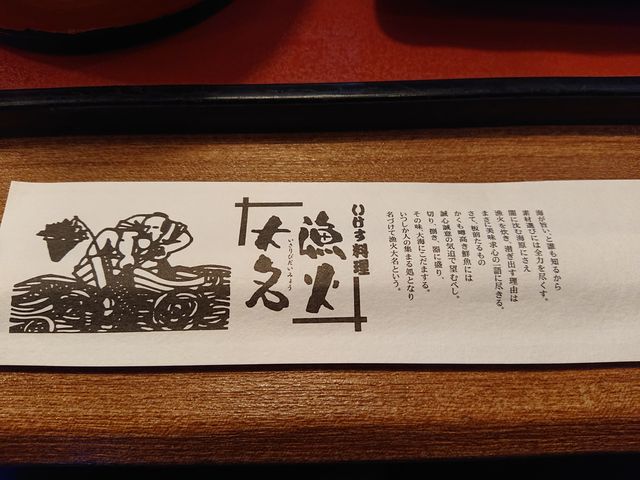 海が旨い、と誰も知るから
素材選びには全力を尽くす。
闇に沈む海原にさえ
漁火を炊き、漕ぎ出す理由は
まさに美味求心の一語に尽きる。
さて、板前たるもの
かくも噂高き鮮魚には
誠心誠意の気迫で望むべし。
切り、捌き、器に盛り、
その味、大海にこだまする。
いつしか人の集まる処となり
名づけて漁火大名という。
いけす料理
漁火
大名
いさりびだいみょう